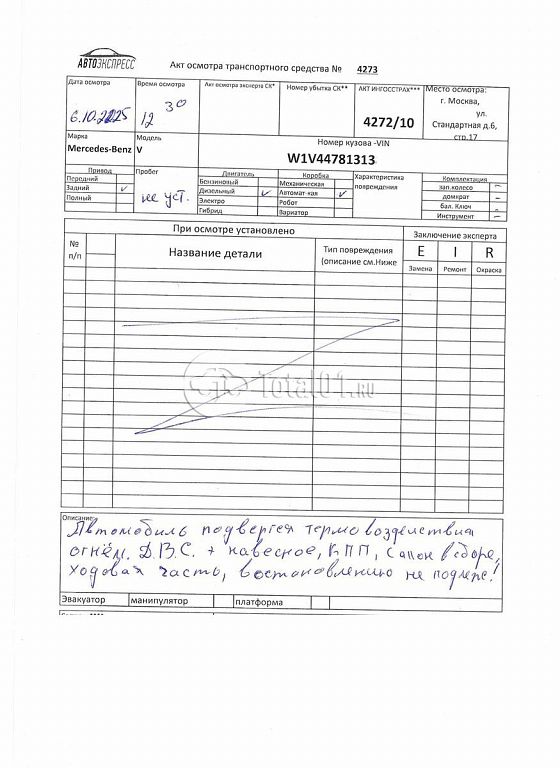 АВТОЭКСПРЕСС
Акт осмотра транспортного средства № 4273
Дата осмотра
6.10.2025
Время осмотра
12 30
Акт осмотра эксперта СК*
Номер убытка СК**
АКТ ИНГОССТРАХ***
4272/10
Место осмотра:
г. Москва,
ул.
Стандартная д.6,
стр.17
Марка
Mercedes-Benz
Модель
V
Номер кузова -VIN
W1V44781313
Привод
Передний
Задний ✓
Полный
Пробег
не уст.
Двигатель
Бензиновый
Дизельный ✓
Электро
Гибрид
Коробка
Механическая
Автомат-кая ✓
Робот
Вариатор
Характеристика
повреждения
Комплектация
зап.колесо –
домкрат –
бал. Ключ –
Инструмент –
При осмотре установлено
Заключение эксперта
№
п/п
Название детали
Тип повреждения
(описание см.Ниже
E I R
Замена Ремонт Окраска
Total01.RU
Описание:
Автомобиль подвергся термовоздействия
огнём. Д.В.С. + навесное, КПП, Салон в сборе,
ходовая часть, востоновлению не подлеж!
Эвакуатор манипулятор платформа